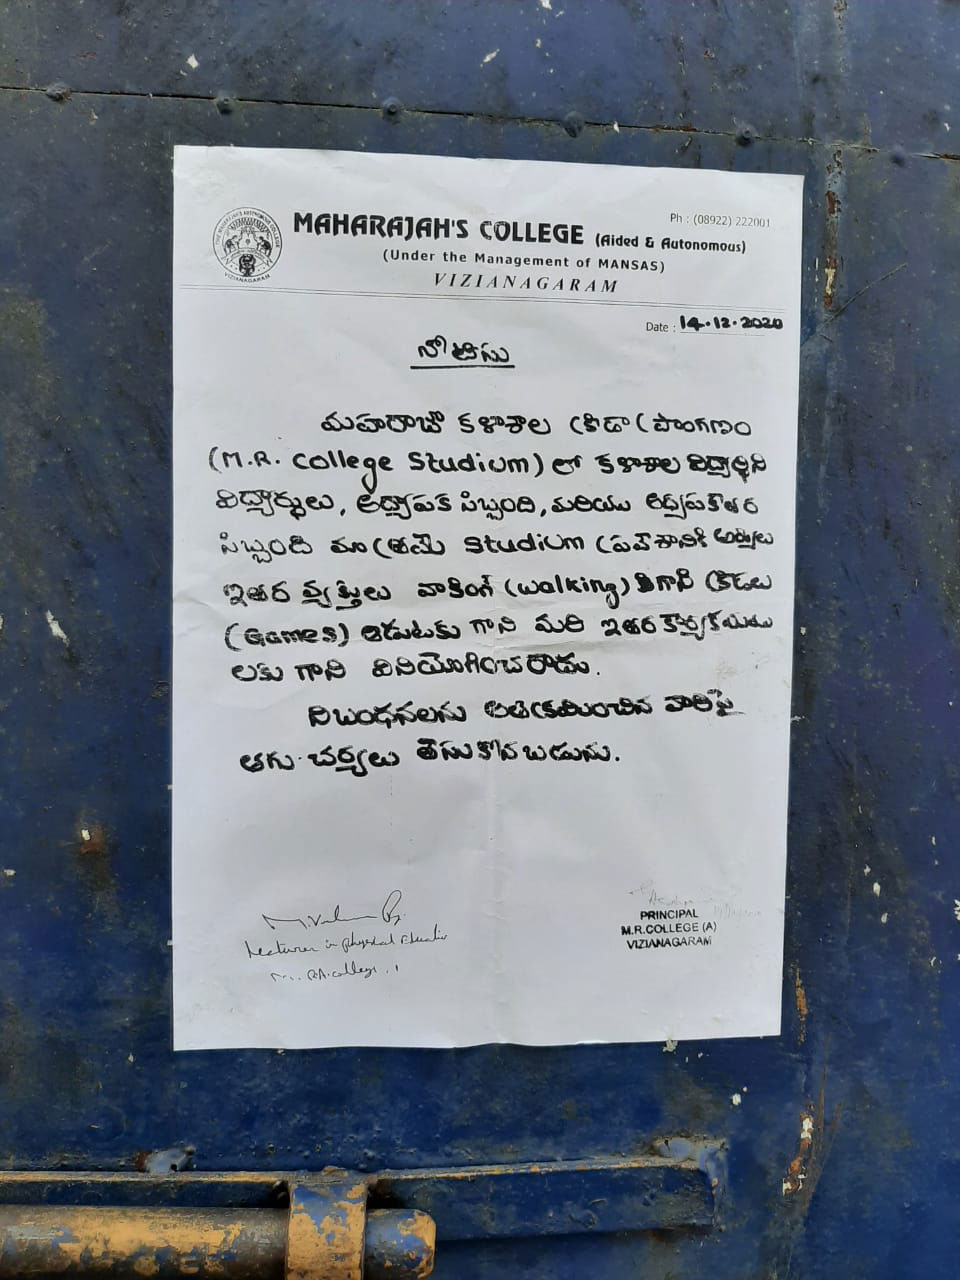 MAHARAJAH'S COLLEGE (Aided & Autonomous)
Ph : (08922) 222001
(Under the Management of MANSAS)
VIZIANAGARAM
Date : 14.12.2020
నోటీసు
మహారాజా కళాశాల క్రీడా ప్రాంగణం
(M.R. College Studium) లో కళాశాల విద్యార్థిని
విద్యార్థులు, అధ్యాపక సిబ్బంది, మరియు అధ్యాపకేతర
సిబ్బంది మాత్రమే Studium ప్రవేశానికి అర్హులు
ఇతర వ్యక్తులు వాకింగ్ (Walking) కిగానీ క్రీడలు
(Games) ఆడుటకు గాని మరి ఇతర కార్యక్రమము
లకు గాని వినియోగించరాదు.
నిబంధనలను అతిక్రమించిన వారిపై
తగు చర్యలు తీసుకొనబడును.
Lecturer in physical education
college
PRINCIPAL
M.R.COLLEGE (A)
VIZIANAGARAM